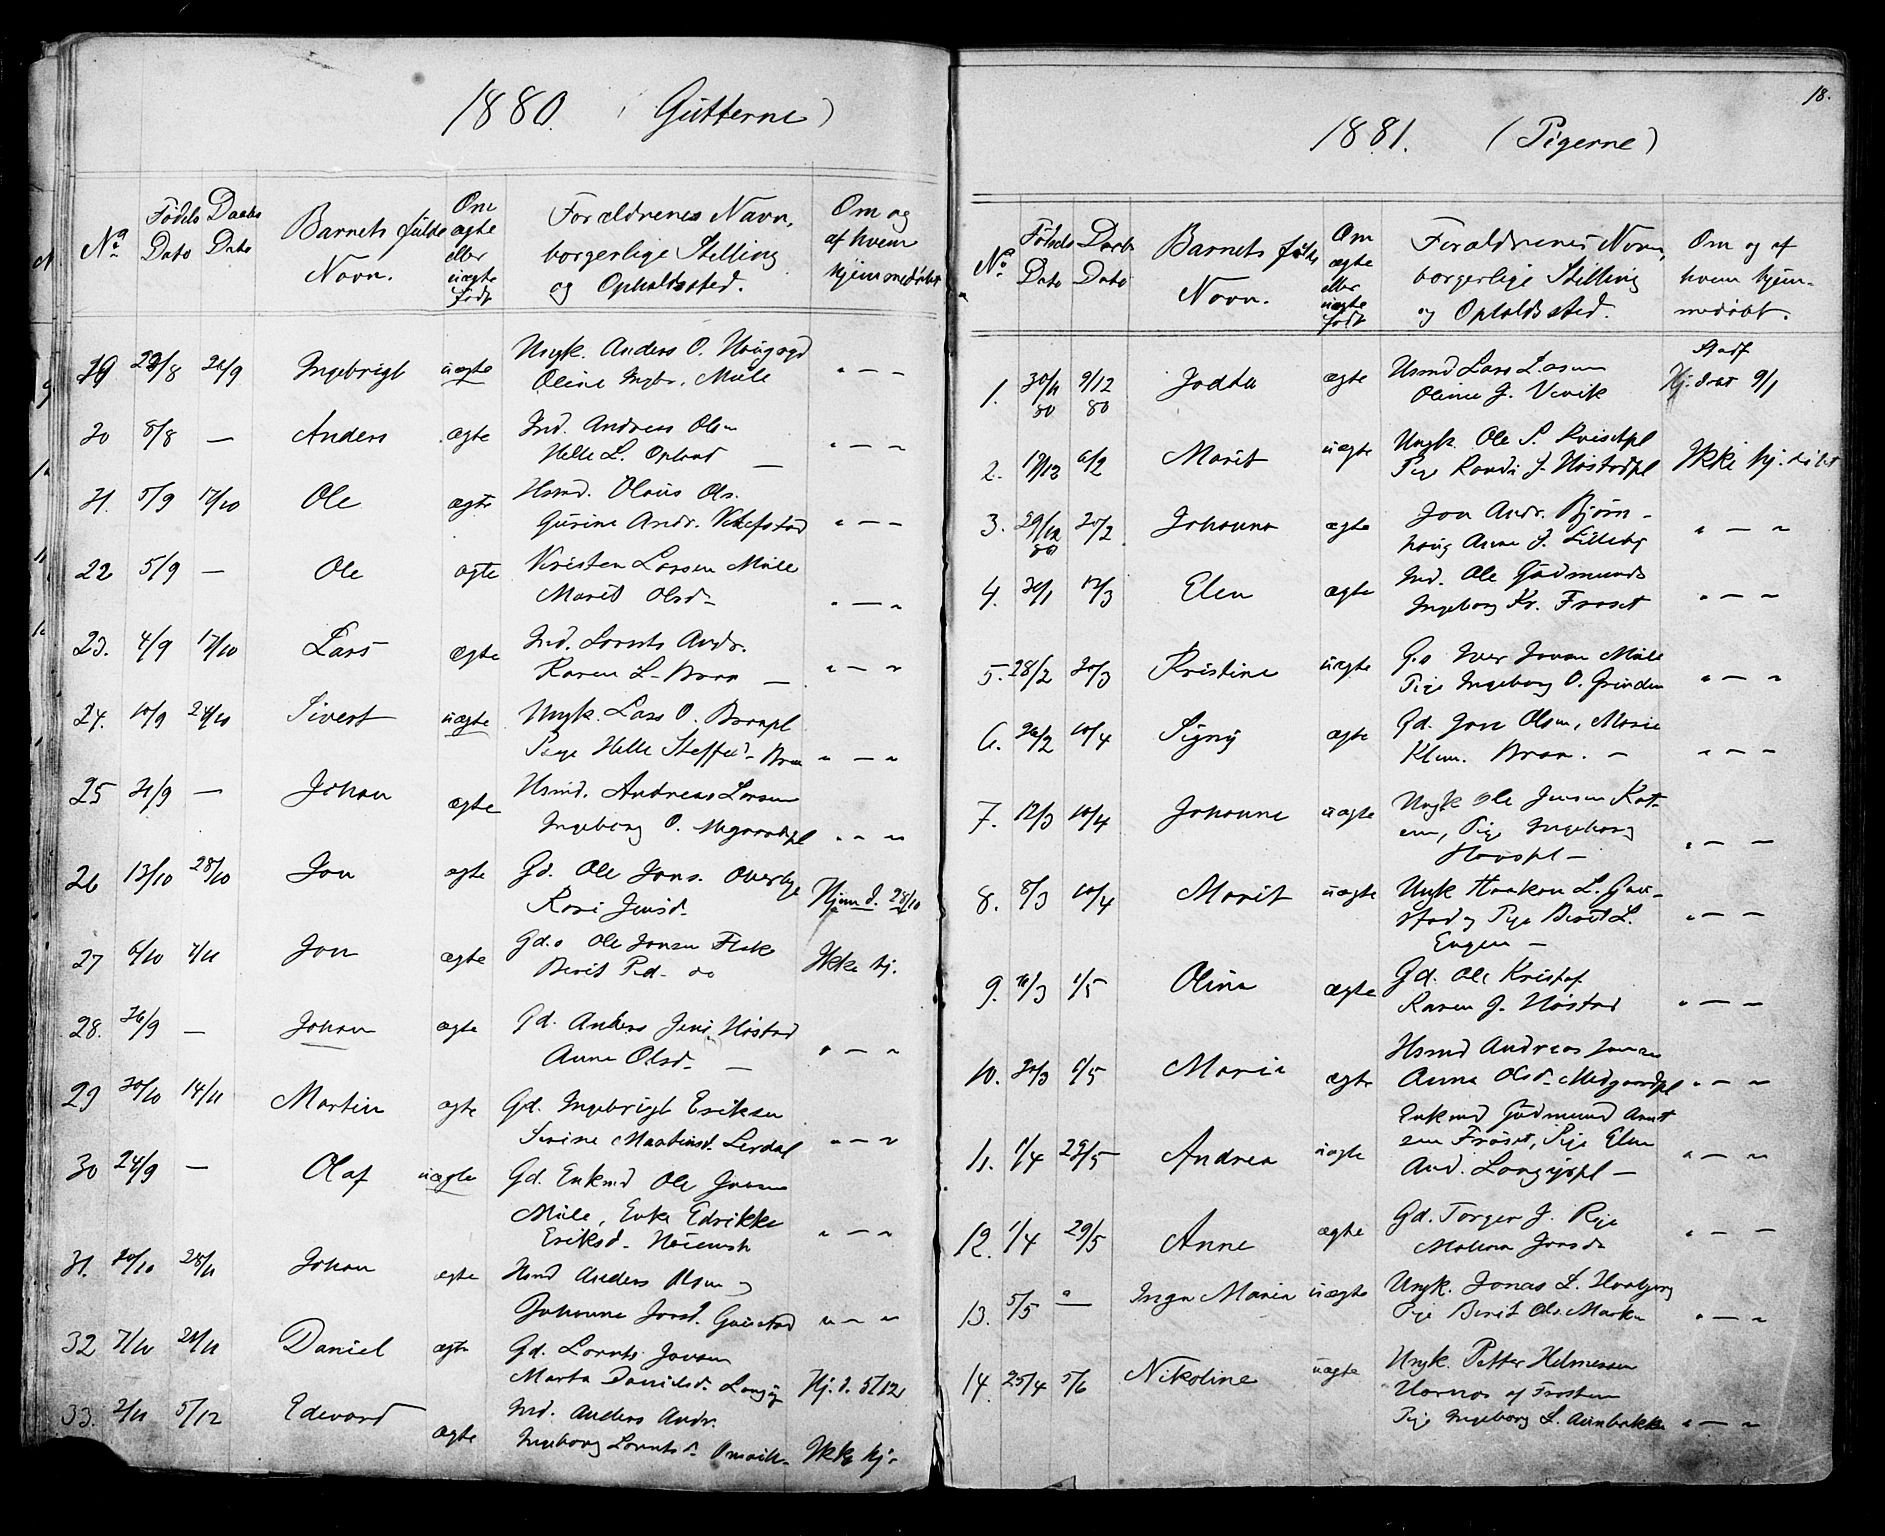 1880. (Gutterne)
No Fødsels Dato Daabs Dato Barnets fulde Navn. Om ægte eller uægte født Forældrenes Navn, borgerlige Stilling og Opholdssted. Om og af hvem hjemmedøbt
29/8 26/9 Ingebrigt uægte Ungk. Anders O.
Oline Ingbr. Mule " — "
20 8/8 — Anders ægte Ind. Andreas Olsen
Helle L. Opland — " — "
21. 5/9 17/10 Ole ægte Hsmd. Olaus Ols.
Gurine Andr. " — "
22 5/9 — Ole ægte Kristen Larsen Mule
Marit Olsd. " — "
23. 4/9 17/10 Lars ægte Ind. Lornts Andr.
Karen L. Braa — " — "
24. 10/9 24/10 Sivert uægte Ungk. Lars O. Braapl
Pige Helle Steffensd. Braa " — "
25 21/9 — Johan ægte Hsmd. Andreas Larsen
Ingeborg O. " — "
26 13/10 28/10 Jon ægte Gd. Ole Jons. Overbye
Jensd. Hjemd. 28/10
27 6/10 7/11 Jon ægte Gd. Ole Jonsen Fisk
Berit Ped. Ikke hj.
28. 26/9 — Johan ægte Gd. Anders Jens. Høstad
Anne Olsd. — " — "
29 20/10 14/11 Martin ægte Gd. Ingebrigt Eriksen
Serine Martinsd. Lerdal " — "
30 24/9 — Olaf uægte Gd. Enkmd Ole Jonsen
Mule, Enke Edrikke
Eriksd. " — "
31. 20/10 28/11 Johan ægte Hsmd Anders Olsen
Johanne Jonsd. Gaustad " — "
32 7/10 21/11 Daniel ægte Gd. Lornts Jonsen
Marta Danielsd. Langøy Hj. d. 5/12
33. 2/11 5/12 Edevard ægte Ind. Anders Andr.
Ingeborg Lorntsd. Ikke hj.
18.
1881. (Pigerne)
No Fødsels Dato Daabs Dato Barnets fulde Navn. Om ægte eller uægte født Forældrenes Navn, borgerlige Stilling og Opholdssted. Om og af hvem hjemmedøbt.
1. 30/11 80 9/12 80 Jodta ægte Hsmd Lars Larsen
Oline J. Vevik Stadf 9/1
2. 19/12 6/2 Marit uægte Ungk. Ole S. Kvistpl
Pige Randi J. Høstadpl Ikke hj. døbt
3. 29/12 80 20/2 Johanna ægte Jon Andr. Bjørn-
haug Anne J. Lilleby " — "
4. 30/1 13/3 Elen ægte Ind. Ole Gudmunds
Ingeborg Kr. Frøset " — "
5. 28/2 20/3 Kristine uægte Iver Jonsen Mule
Pige Ingeborg O. Grinden " — "
6. 26/2 10/4 Signy ægte Gd. Jon Olsen, Marie
Klem. Braa. — " — "
7. 12/3 10/4 Johanne uægte Ungk Ole Jensen Kat-
em, Pige Ingeborg
Hovspl — " — "
8. 8/3 10/4 Marit uægte Ungk Haakon L. Gau-
stad og Pige Berit L.
Engen — " — "
9. 11/3 1/5 Olina ægte Gd. Ole Kristof
Karen J. Høstad " — "
10. 30/3 1/5 Maria ægte Hsmd Andreas Jonsen
Anna Olsd. Midgaardpl " — "
11. 1/4 29/5 Andrea uægte Enkmd Gudmund Arnt
zen Frøset, Pige Elen
And. Langøypl — " — "
12. 1/4 29/5 Anne ægte Gd. Torger J. Rye
Malena Jonsd. " — —
13. 5/5 " — Inga Maria uægte Ungk. Jonas L.
Pige Berit Ols. Marken " — "
14. 25/4 5/6 Nikoline uægte Ungk. Petter Helmersen
Hornos af Frosten
Pige Ingeborg L. Aunbakken " — "